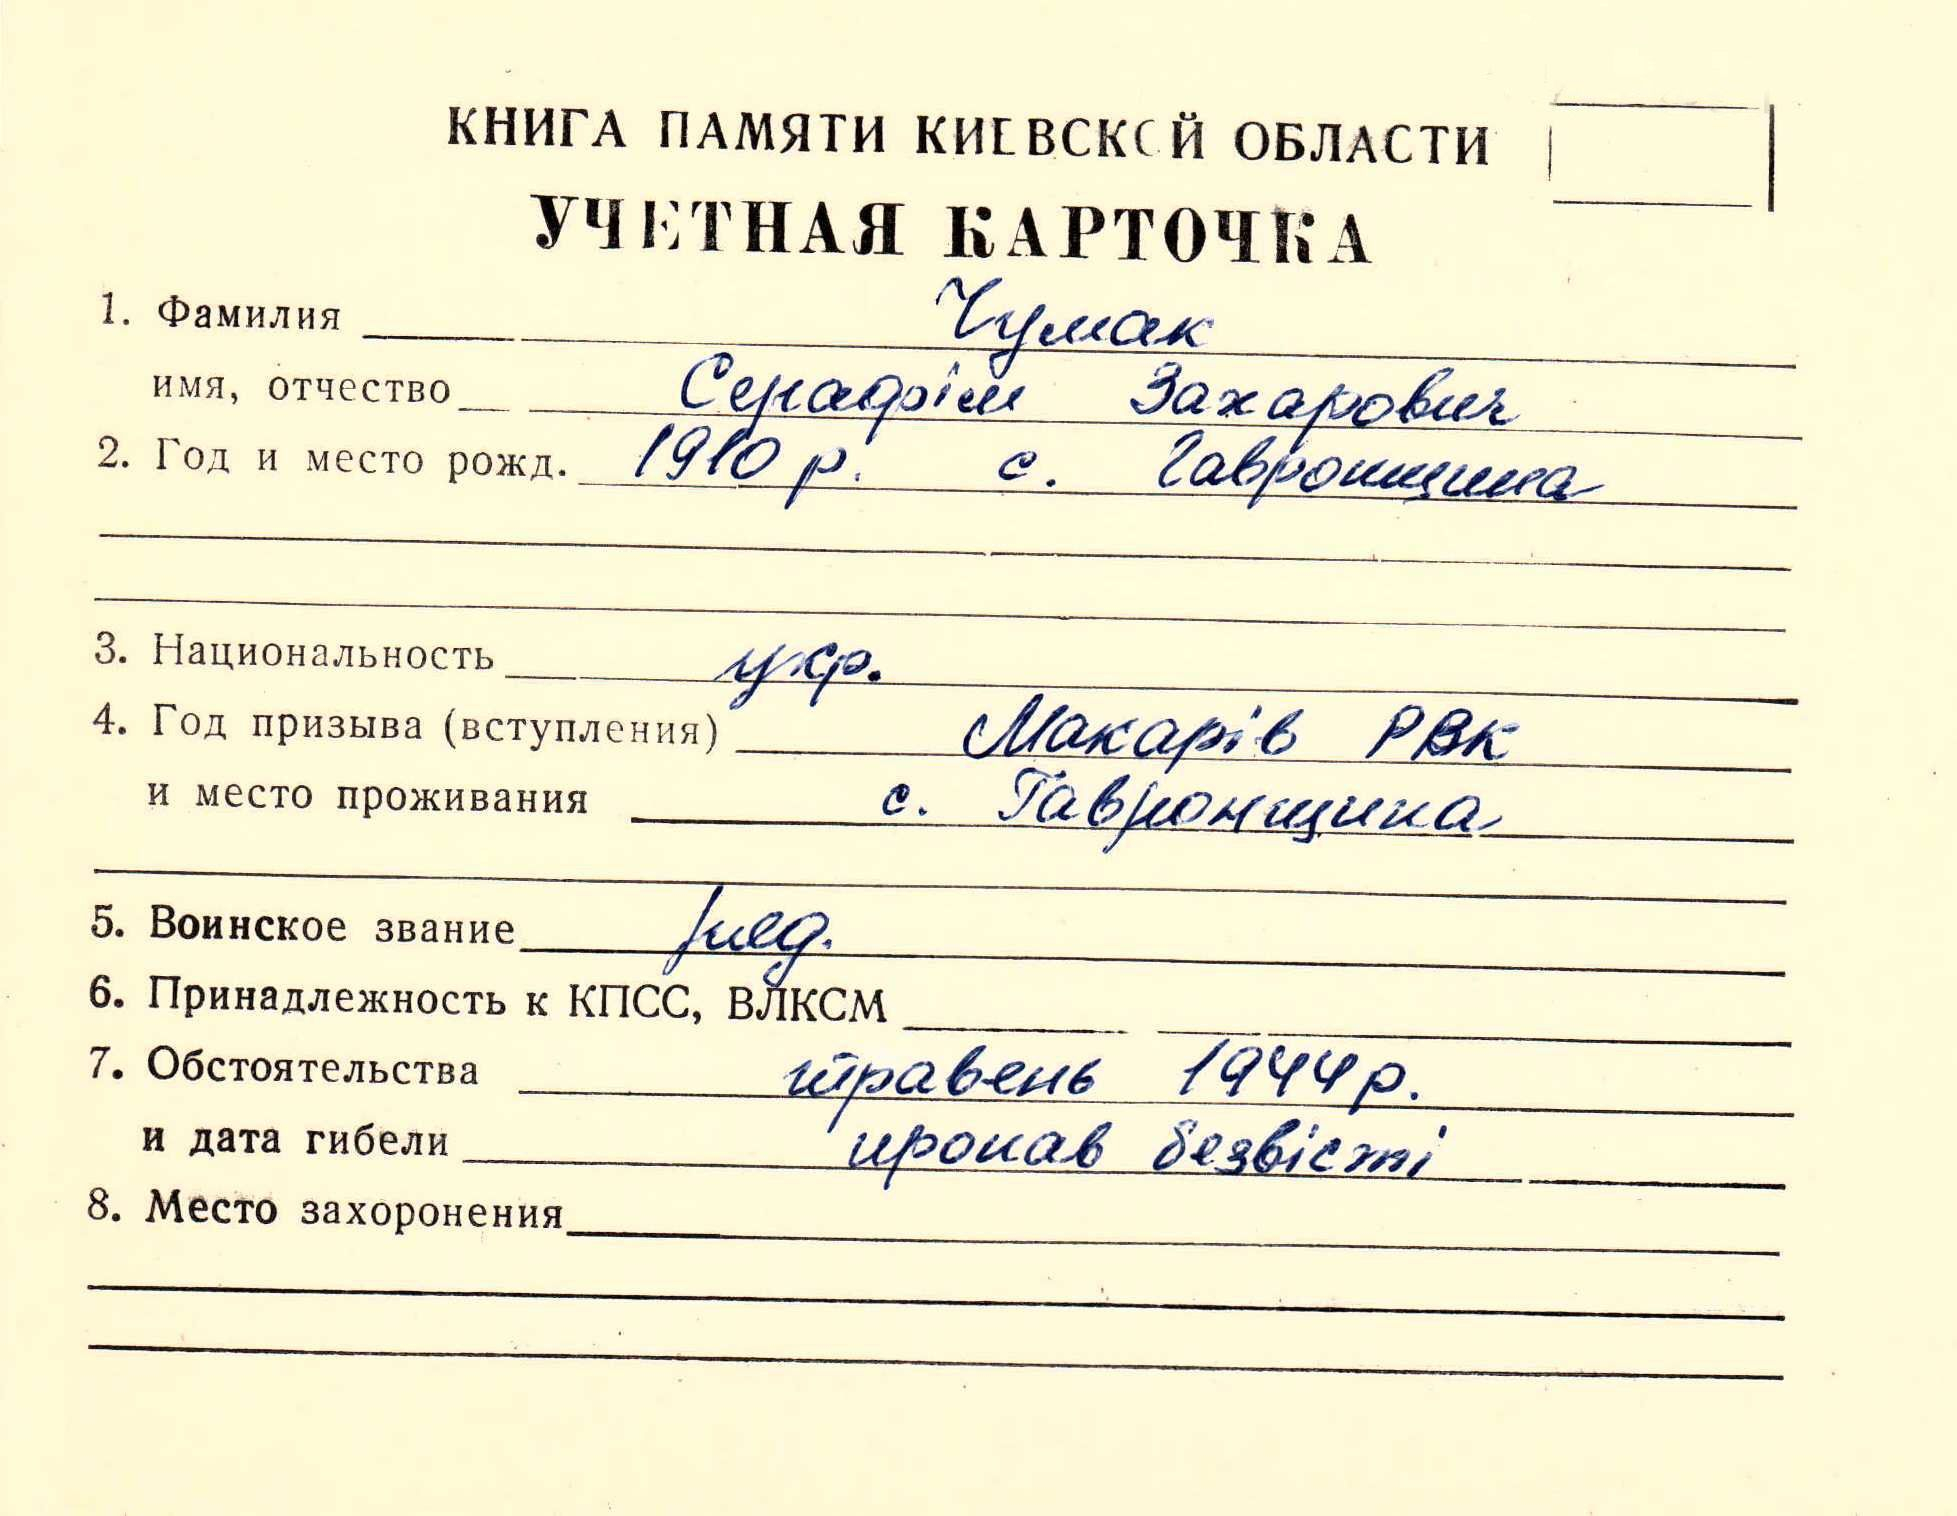 КНИГА ПАМЯТИ КИЕВСКОЙ ОБЛАСТИ
УЧЕТНАЯ КАРТОЧКА
1. Фамилия Чумак
имя, отчество Серафім Захарович
2. Год и место рожд. 1910 р. с. Гавронщина
3. Национальность укр.
4. Год призыва (вступления) Макарів РВК
и место проживания с. Гавронщина
5. Воинское звание ряд.
6. Принадлежность к КПСС, ВЛКСМ
7. Обстоятельства травень 1944 р.
и дата гибели пропав безвісті
8. Место захоронения